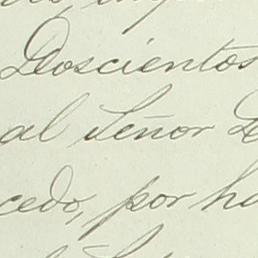 Doscientos
al Señor
cedo, por ha